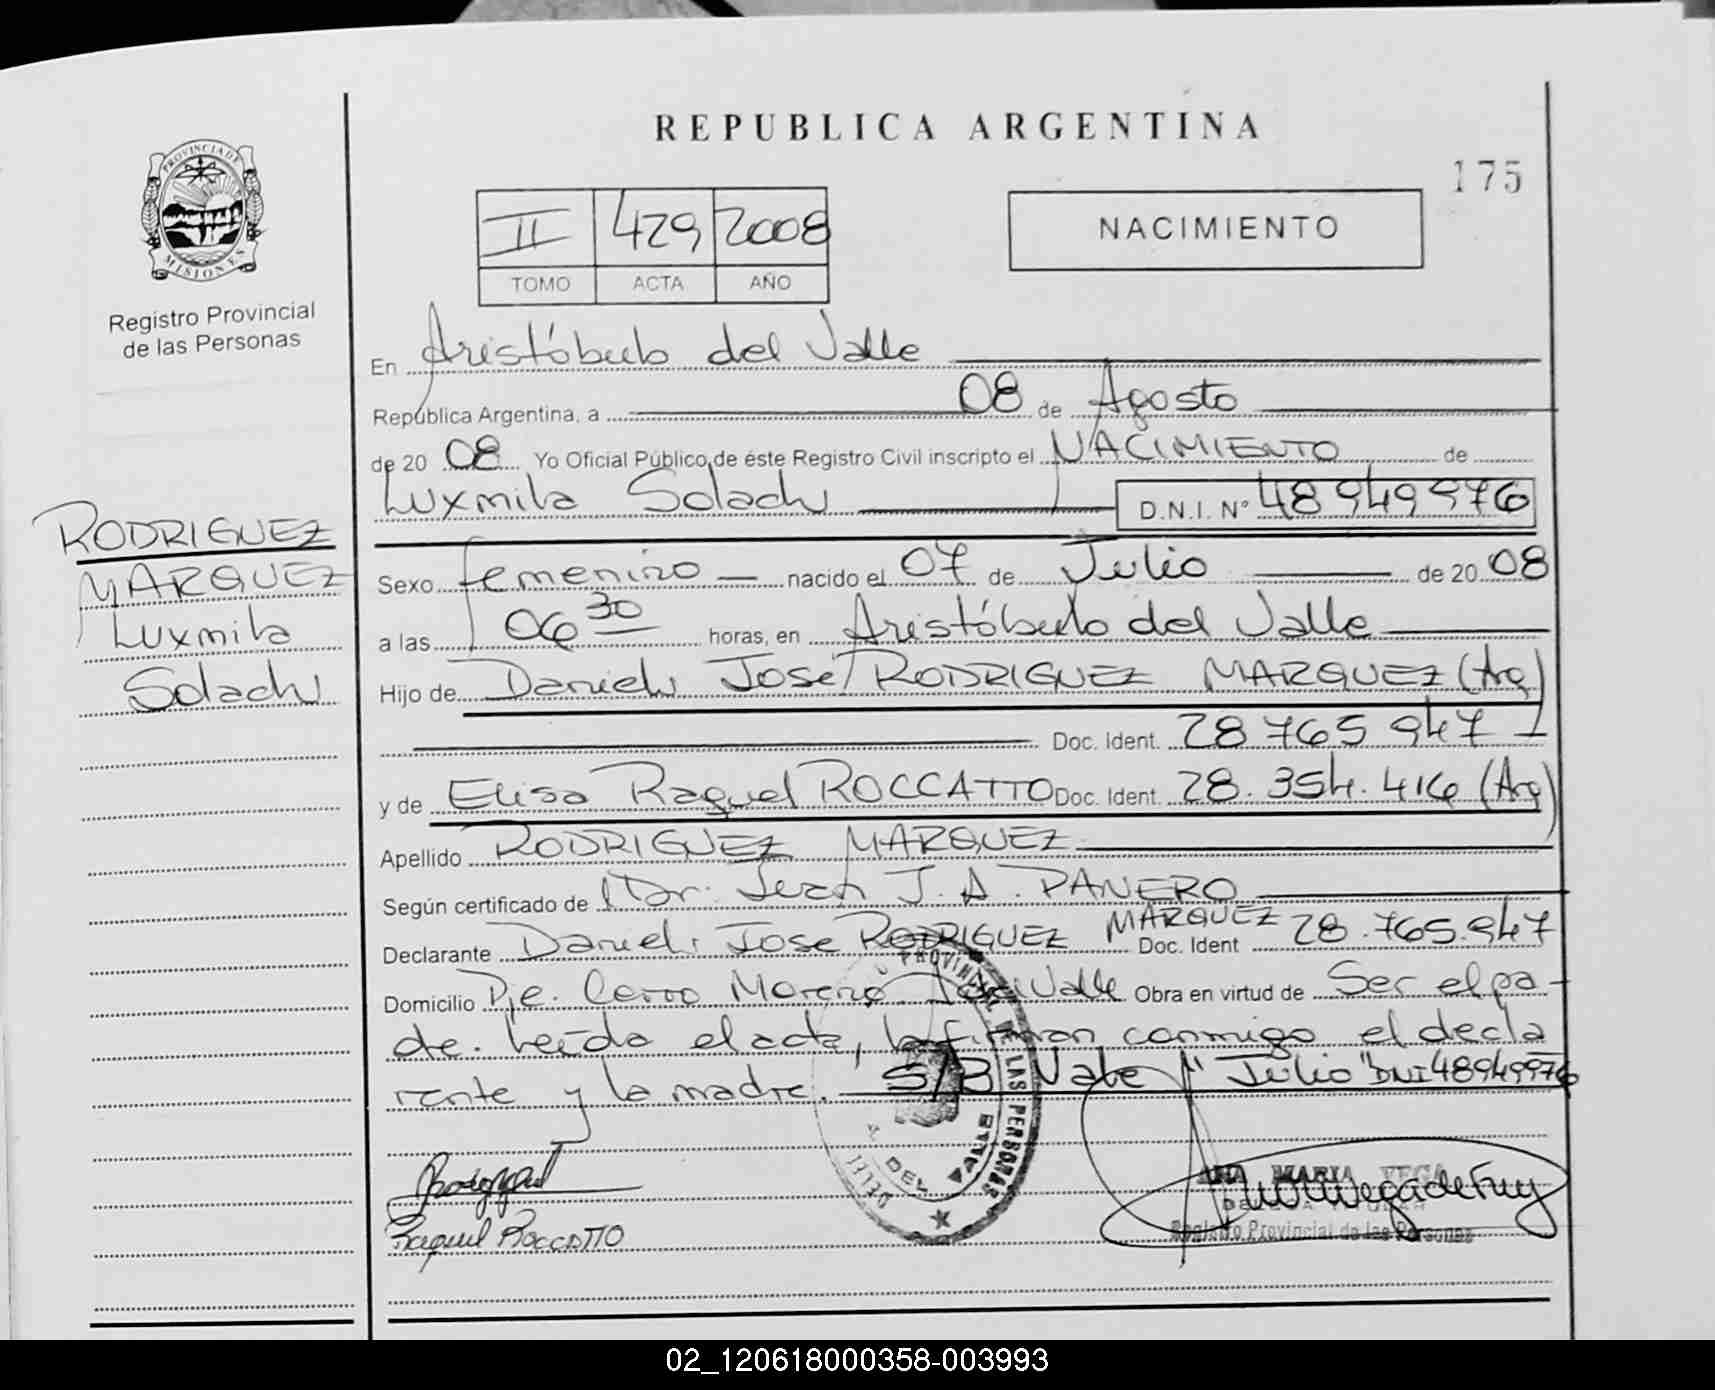 REPUBLICA ARGENTINA
175
PROVINCIA DE
MISIONES
Registro Provincial
de las Personas
II 429 2008
TOMO ACTA AÑO
NACIMIENTO
En Aristóbulo del Valle
República Argentina, a 08 de Agosto
de 20 08 Yo Oficial Público de éste Registro Civil inscripto el NACIMIENTO de
Luxmila Solachi D.N.I. Nº 48 949 976
RODRIGUEZ
MARQUEZ
Luxmila
Solachi
Sexo femenino nacido el 07 de Julio de 20 08
a las 06 30 horas, en Aristóbulo del Valle
Hijo de Daniel José RODRIGUEZ MARQUEZ (Arg)
Doc. Ident. 28 765 947
y de Elisa Raquel ROCCATTO Doc. Ident. 28.354.416 (Arg)
Apellido RODRIGUEZ MARQUEZ
Según certificado de Dr. Juan J. A. PANERO
Declarante Daniel José RODRIGUEZ MARQUEZ Doc. Ident 28.765.947
Domicilio Pje. Cerro Moreno Valle Obra en virtud de Ser el pa-
dre. Leída el acta, la firman conmigo el decla
rante y la madre. S/B Vale "Julio" DNI 48949976
PROVINCIAL DE LAS PERSONAS
DEL VALLE
Raquel ROCCATTO
MARIA VEGA
Registro Provincial de las Personas
02_120618000358-003993